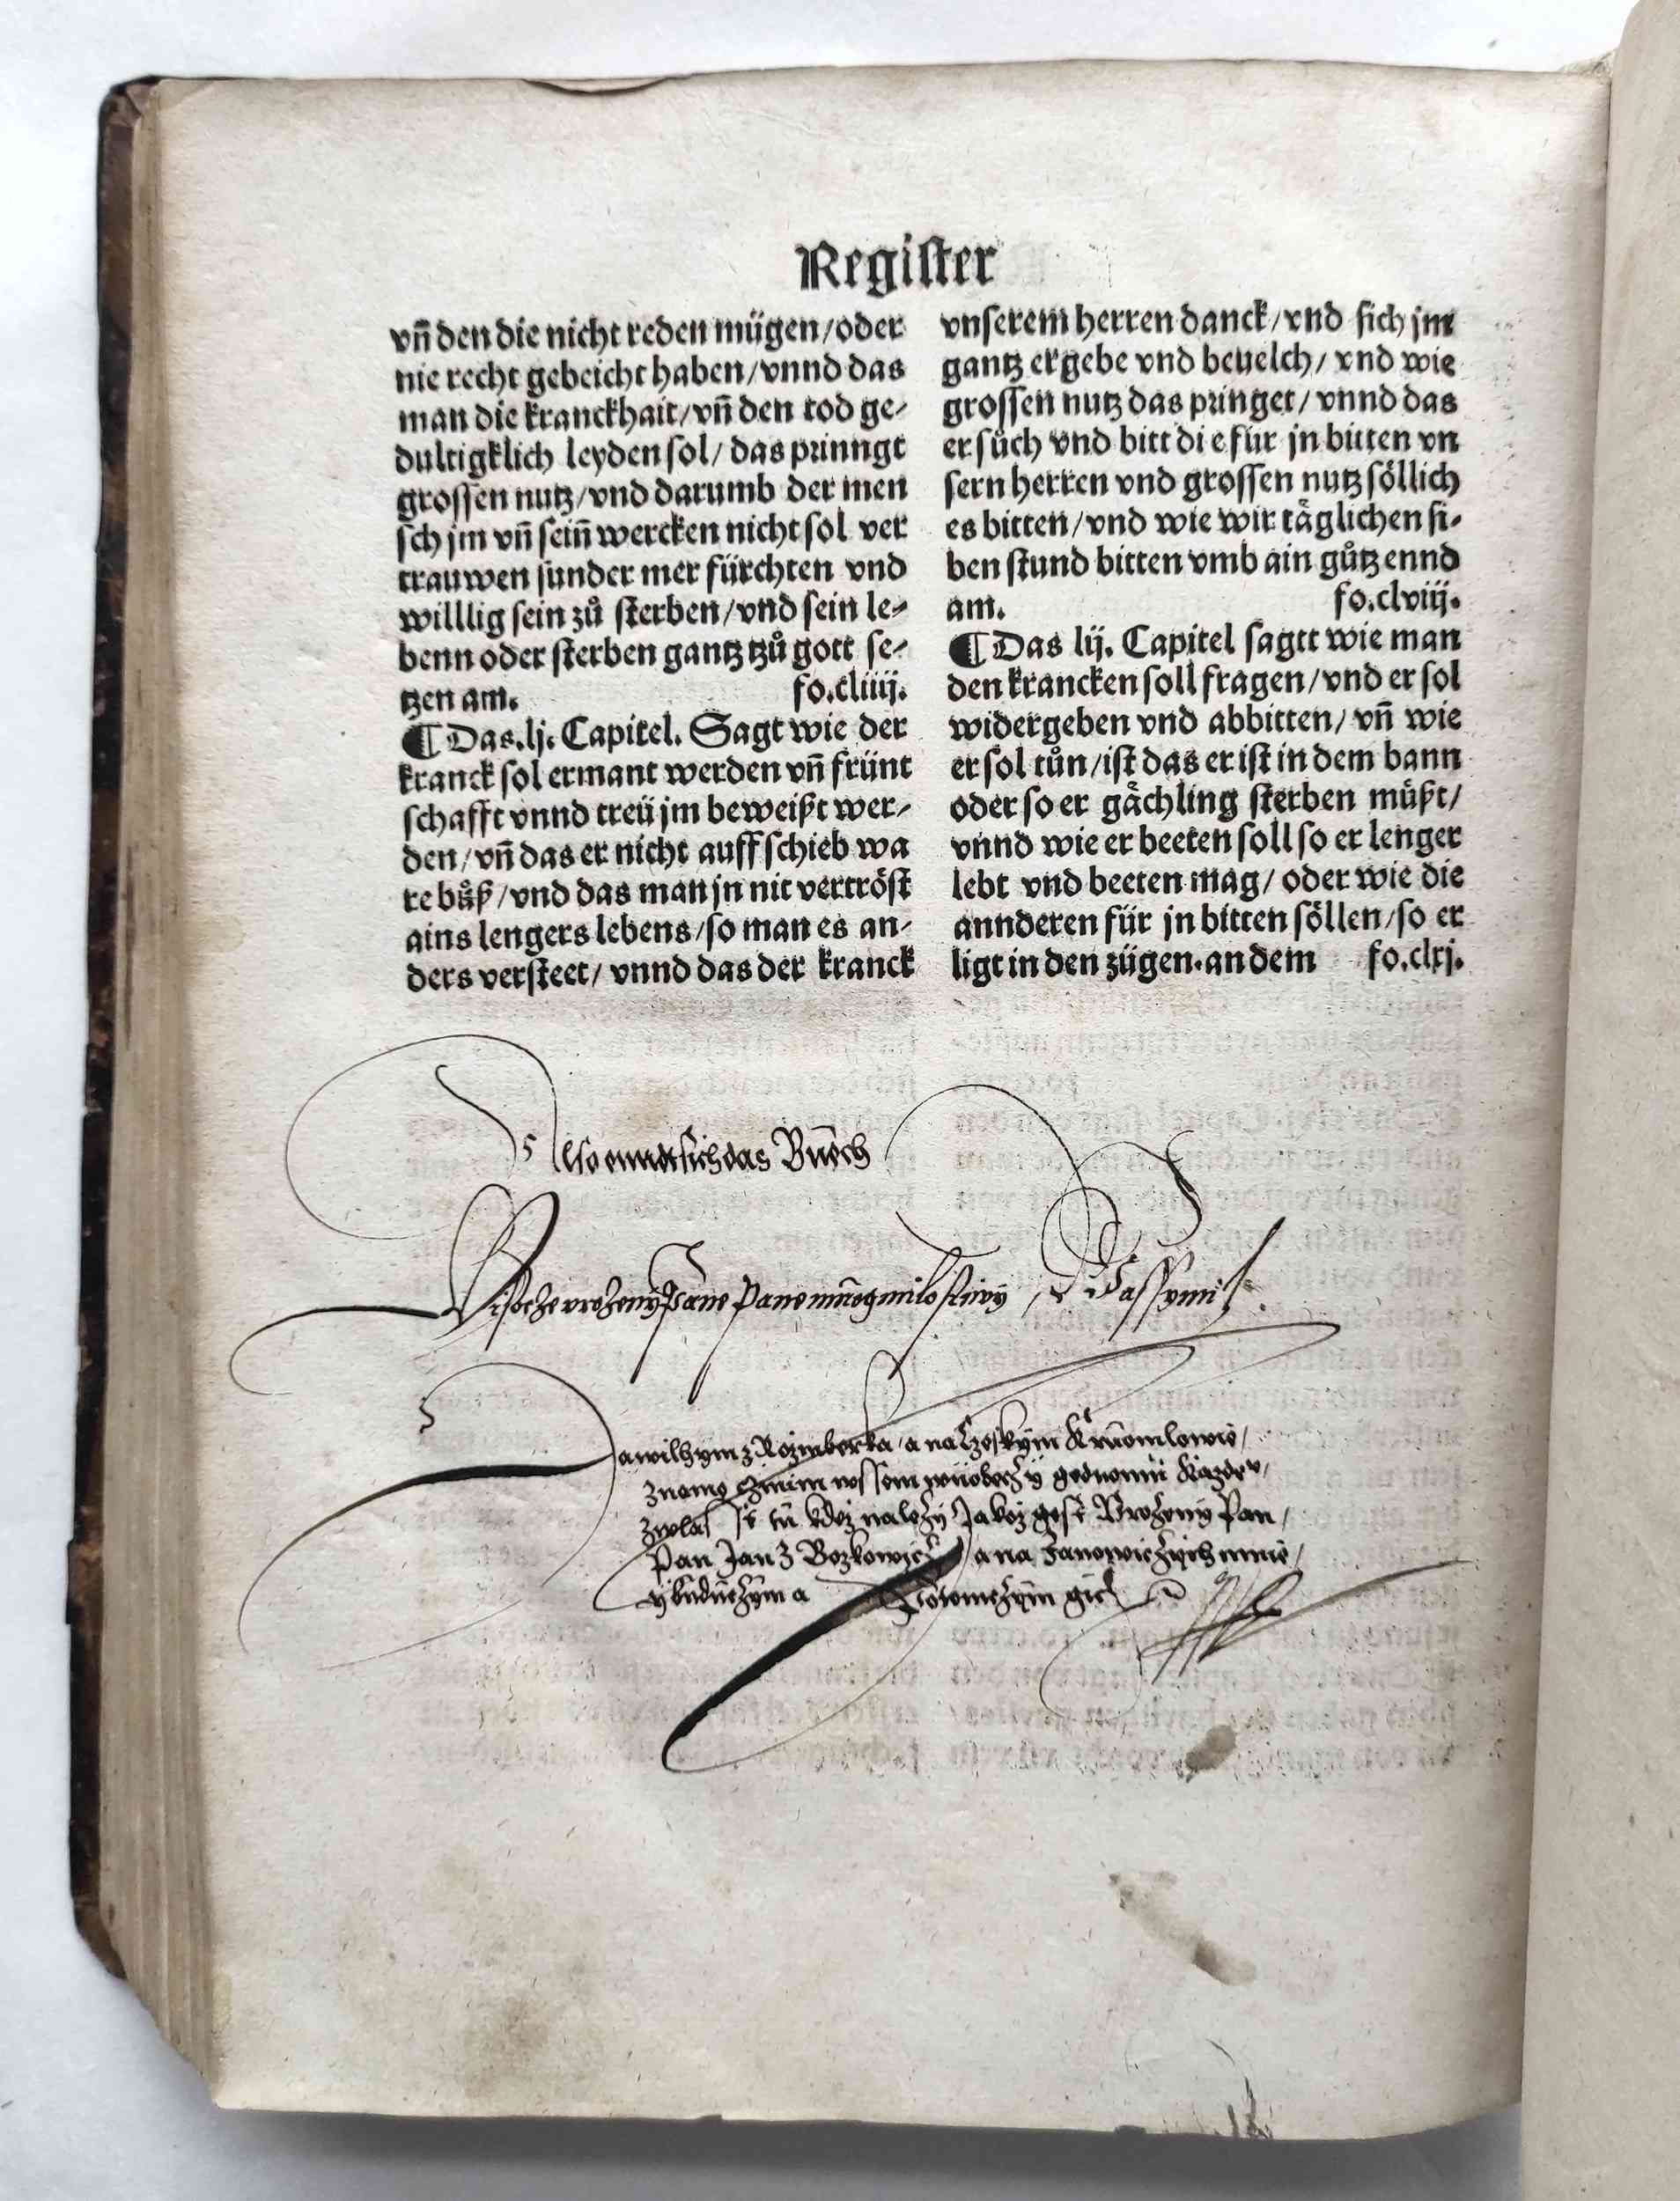 Register
vñ den die nicht reden mügen/oder
nie recht gebeicht haben/vnnd das
man die kranckhait/vñ den tod ge⸗
dultigklich leyden sol/ das prinngt
grossen nutz/vnd darumb der men
sch jm vñ seiñ wercken nicht sol ver
trauwen sunder mer fürchten vnd
willlig sein zů sterben/vnd sein le⸗
benn oder sterben gantz tzů gott se⸗
tzen am. fo.cliiij.
¶ Das.lj. Capitel. Sagt wie der
kranck sol ermant werden vñ frünt
schafft vnnd treü jm beweißt wer⸗
den/vñ das er nicht auff schieb wa
re bůß/vnd das man jn nit vertröst
ains lengers lebens/so man es an⸗
ders versteet/ vnnd das der kranck
vnserem herren danck/vnd sich jm
gantz ergebe vnd beuelch/ vnd wie
grossen nutz das pringet/ vnnd das
er sůch vnd bitt die für jn bitten vn
sern herren vnd grossen nutz söllich
es bitten/vnd wie wir täglichen si⸗
ben stund bitten vmb ain gůtz ennd
am. fo.clviij.
¶ Das lij. Capitel sagtt wie man
den krancken soll fragen/vnd er sol
widergeben vnd abbitten/ vñ wie
er sol tůn/ist das er ist in dem bann
oder so er gächling sterben müßt/
vnnd wie er beeten soll so er lenger
lebt vnd beeten mag/ oder wie die
annderen für jn bitten söllen/so er
ligt in den zügen.an dem fo.clxj.
Also enndt sich das Buech
Wisocze vrozeny Pane Pane muog milostiwy
Ja wilhym z Rozmberka a na Czeskym Kruomlowie/
znamo czinim wssem wuobeczy
zwlasst tu kdez nalezy Jakoz gest Vrozeny Pan/
Pan Jan z Bozkowicz a na
y buduczym a